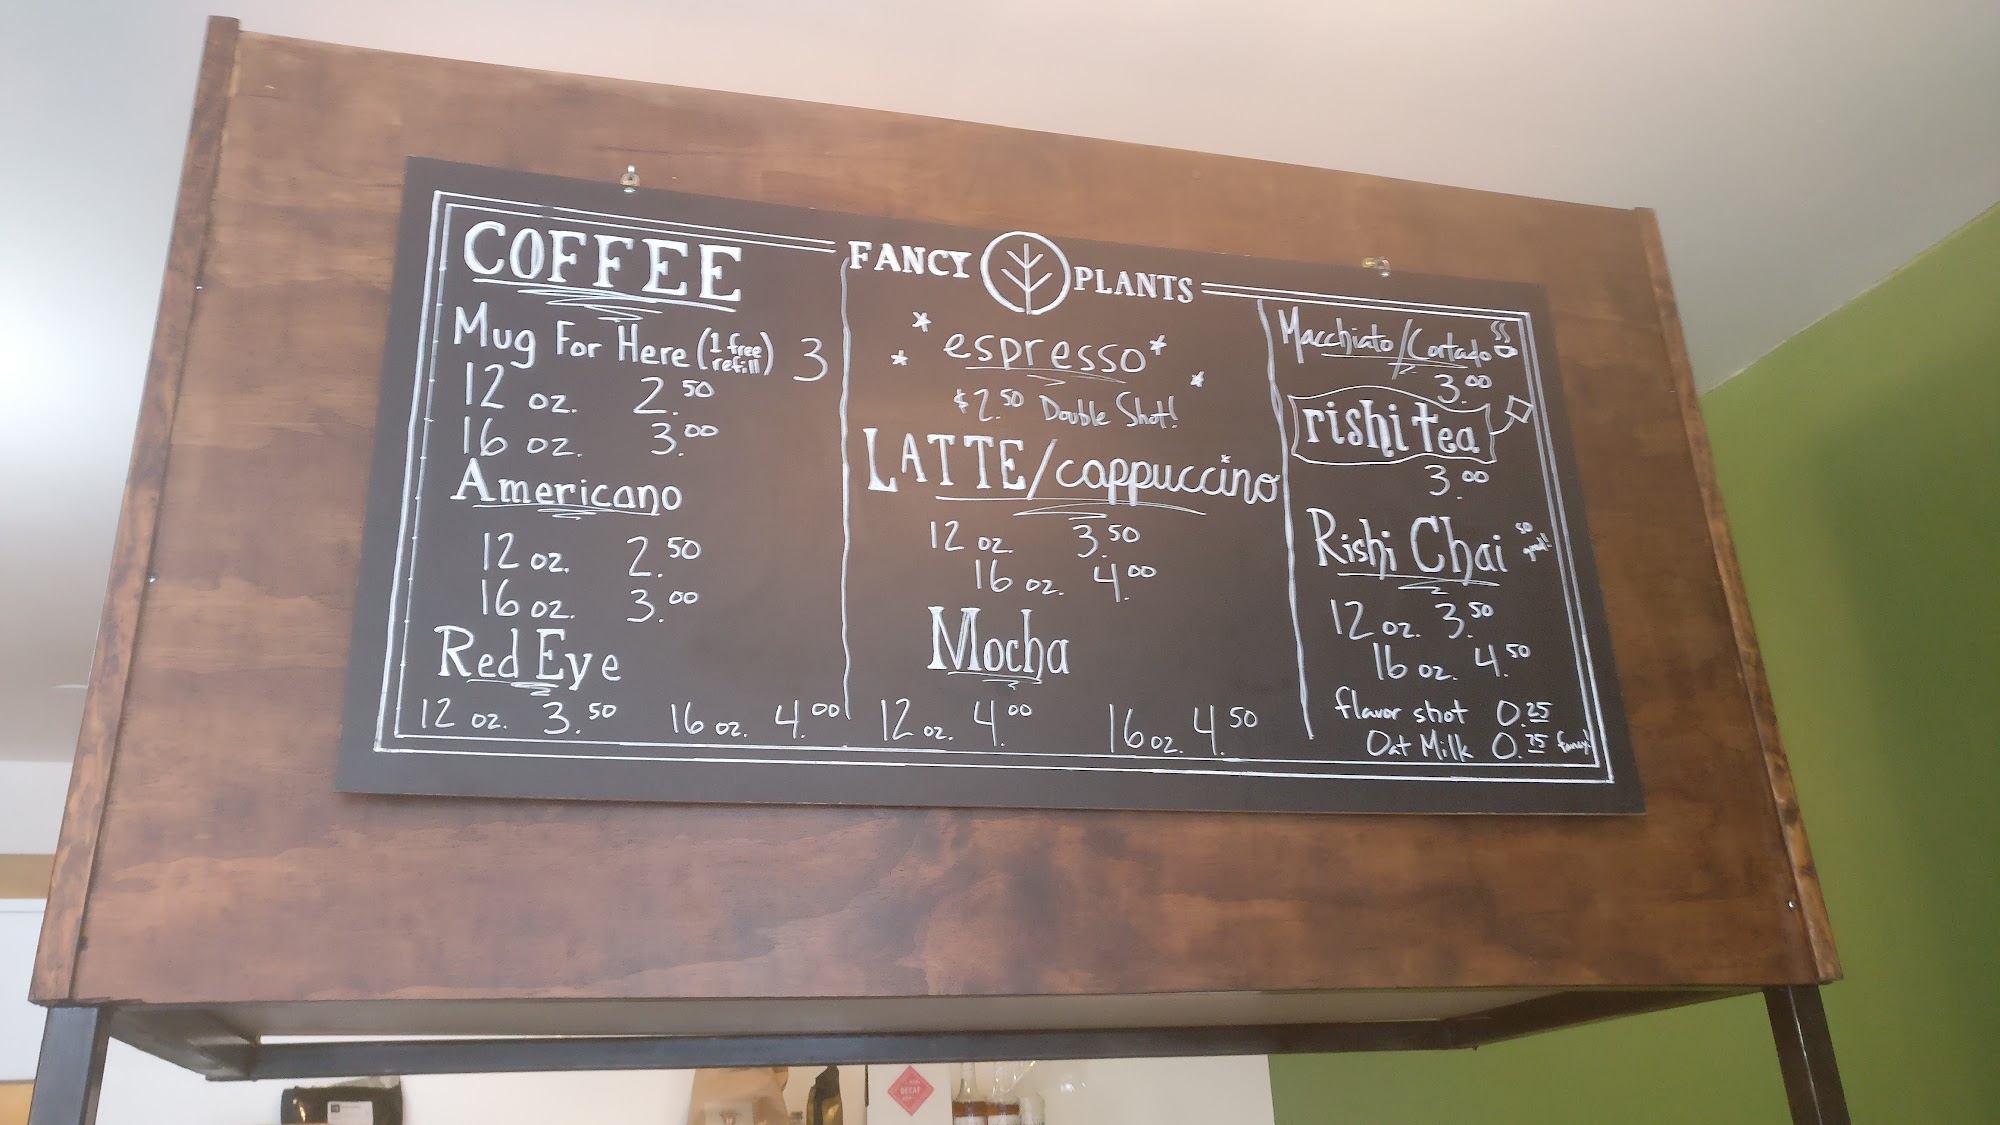 FANCY PLANTS
COFFEE
Mug For Here (1 free refill) 3
12 oz. 2.50
16 oz. 3.00
Americano
12 oz. 2.50
16 oz. 3.00
Red Eye
12 oz. 3.50 16 oz. 4.00
espresso
$2.50 Double Shot!
LATTE/cappuccino
12 oz. 3.50
16 oz. 4.00
Mocha
12 oz. 4.00 16 oz. 4.50
Macchiato/Cortado
3.00
rishi tea
3.00
Rishi Chai so good!
12 oz. 3.50
16 oz. 4.50
flavor shot 0.25
Oat Milk 0.75 fancy!
DECAF